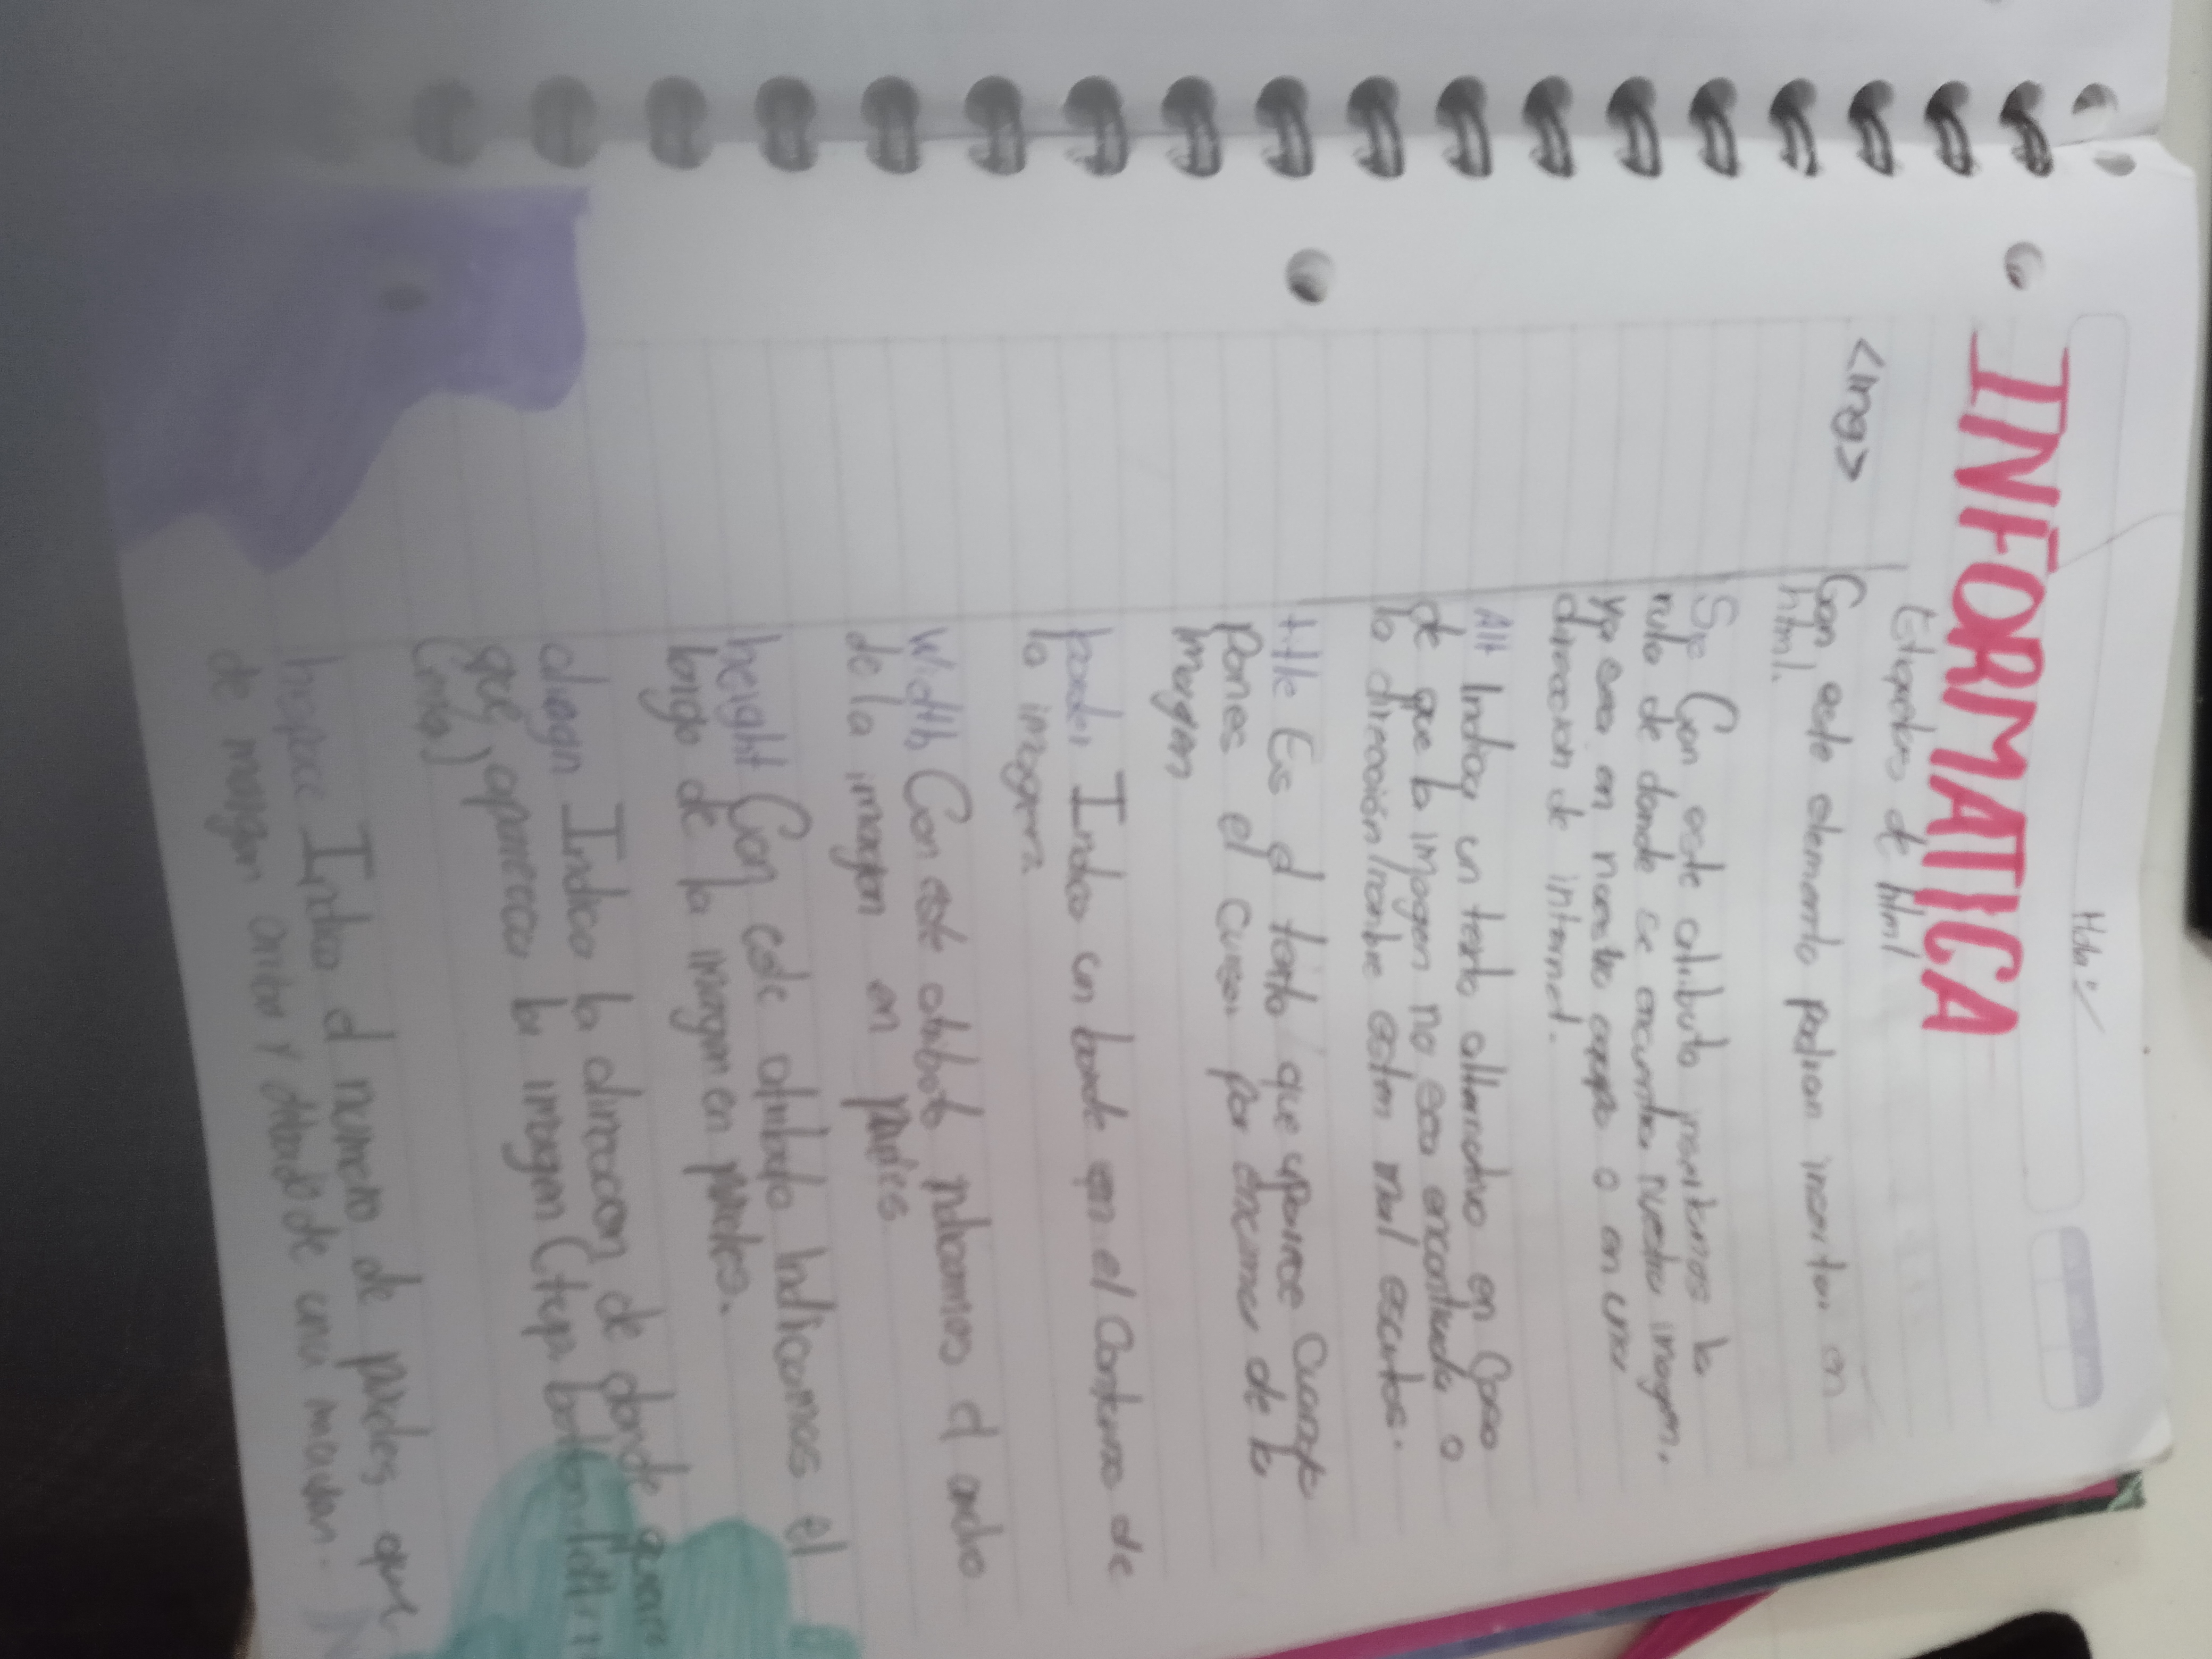 Hda
INFORMATICA
Etiquetas de html
<img> Con este elemento podran insertar en
html.
Src Con este atributo la
ruta de donde se encuentra nuestra imagen,
ya sea en nuestro o en una
direccion de internet.
Alt Indica un texto alternativo en Caso
de que la imagen no sea encontrada o
la dirección/nombre esten mal escritos.
title Es el texto que aparece Cuando
pones el cursor por encima de la
imagen
border Indica un borde en el Contorno de
la imagen
Width Con este atributo indicamos el ancho
de la imagen en pixeles
height Con este atributo Indicamos el
largo de la imagen en pixeles.
align Indica la direccion de donde quieres
que aparezca la imagen (top, bottom, left, ri

hspace Indica el numero de pixeles que
de margen arriba y de una